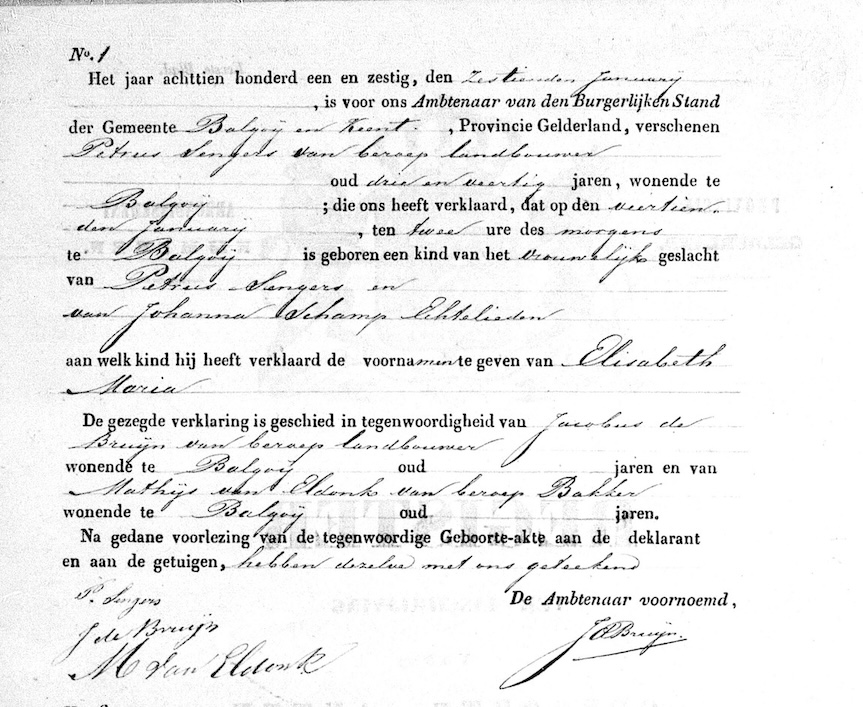 No. 1
Het jaar achttien honderd een en zestig, den zestienden January
, is voor ons Ambtenaar van den Burgerlijken Stand
der Gemeente Balgoij en Keent. , Provincie Gelderland, verschenen
Petrus Sengers van beroep landbouwer
oud drie en veertig jaren, wonende te
Balgoij ; die ons heeft verklaard, dat op den veertien
den January , ten twee ure des morgens
te Balgoij is geboren een kind van het vrouwelijk geslacht
van Petrus Sengers en
van Johanna Schamp Echtelieden
aan welk kind hij heeft verklaard de voornamen te geven van Elisabeth
Maria
De gezegde verklaring is geschied in tegenwoordigheid van Jacobus de
Bruijn van beroep landbouwer
wonende te Balgoij oud jaren en van
Mathijs van Eldonk van beroep Bakker
wonende te Balgoij oud jaren.
Na gedane voorlezing van de tegenwoordige Geboorte-akte aan de deklarant
en aan de getuigen, hebben dezelve met ons geteekend
P. Sengers
De Ambtenaar voornoemd,
J de Bruijn
M van Eldonk